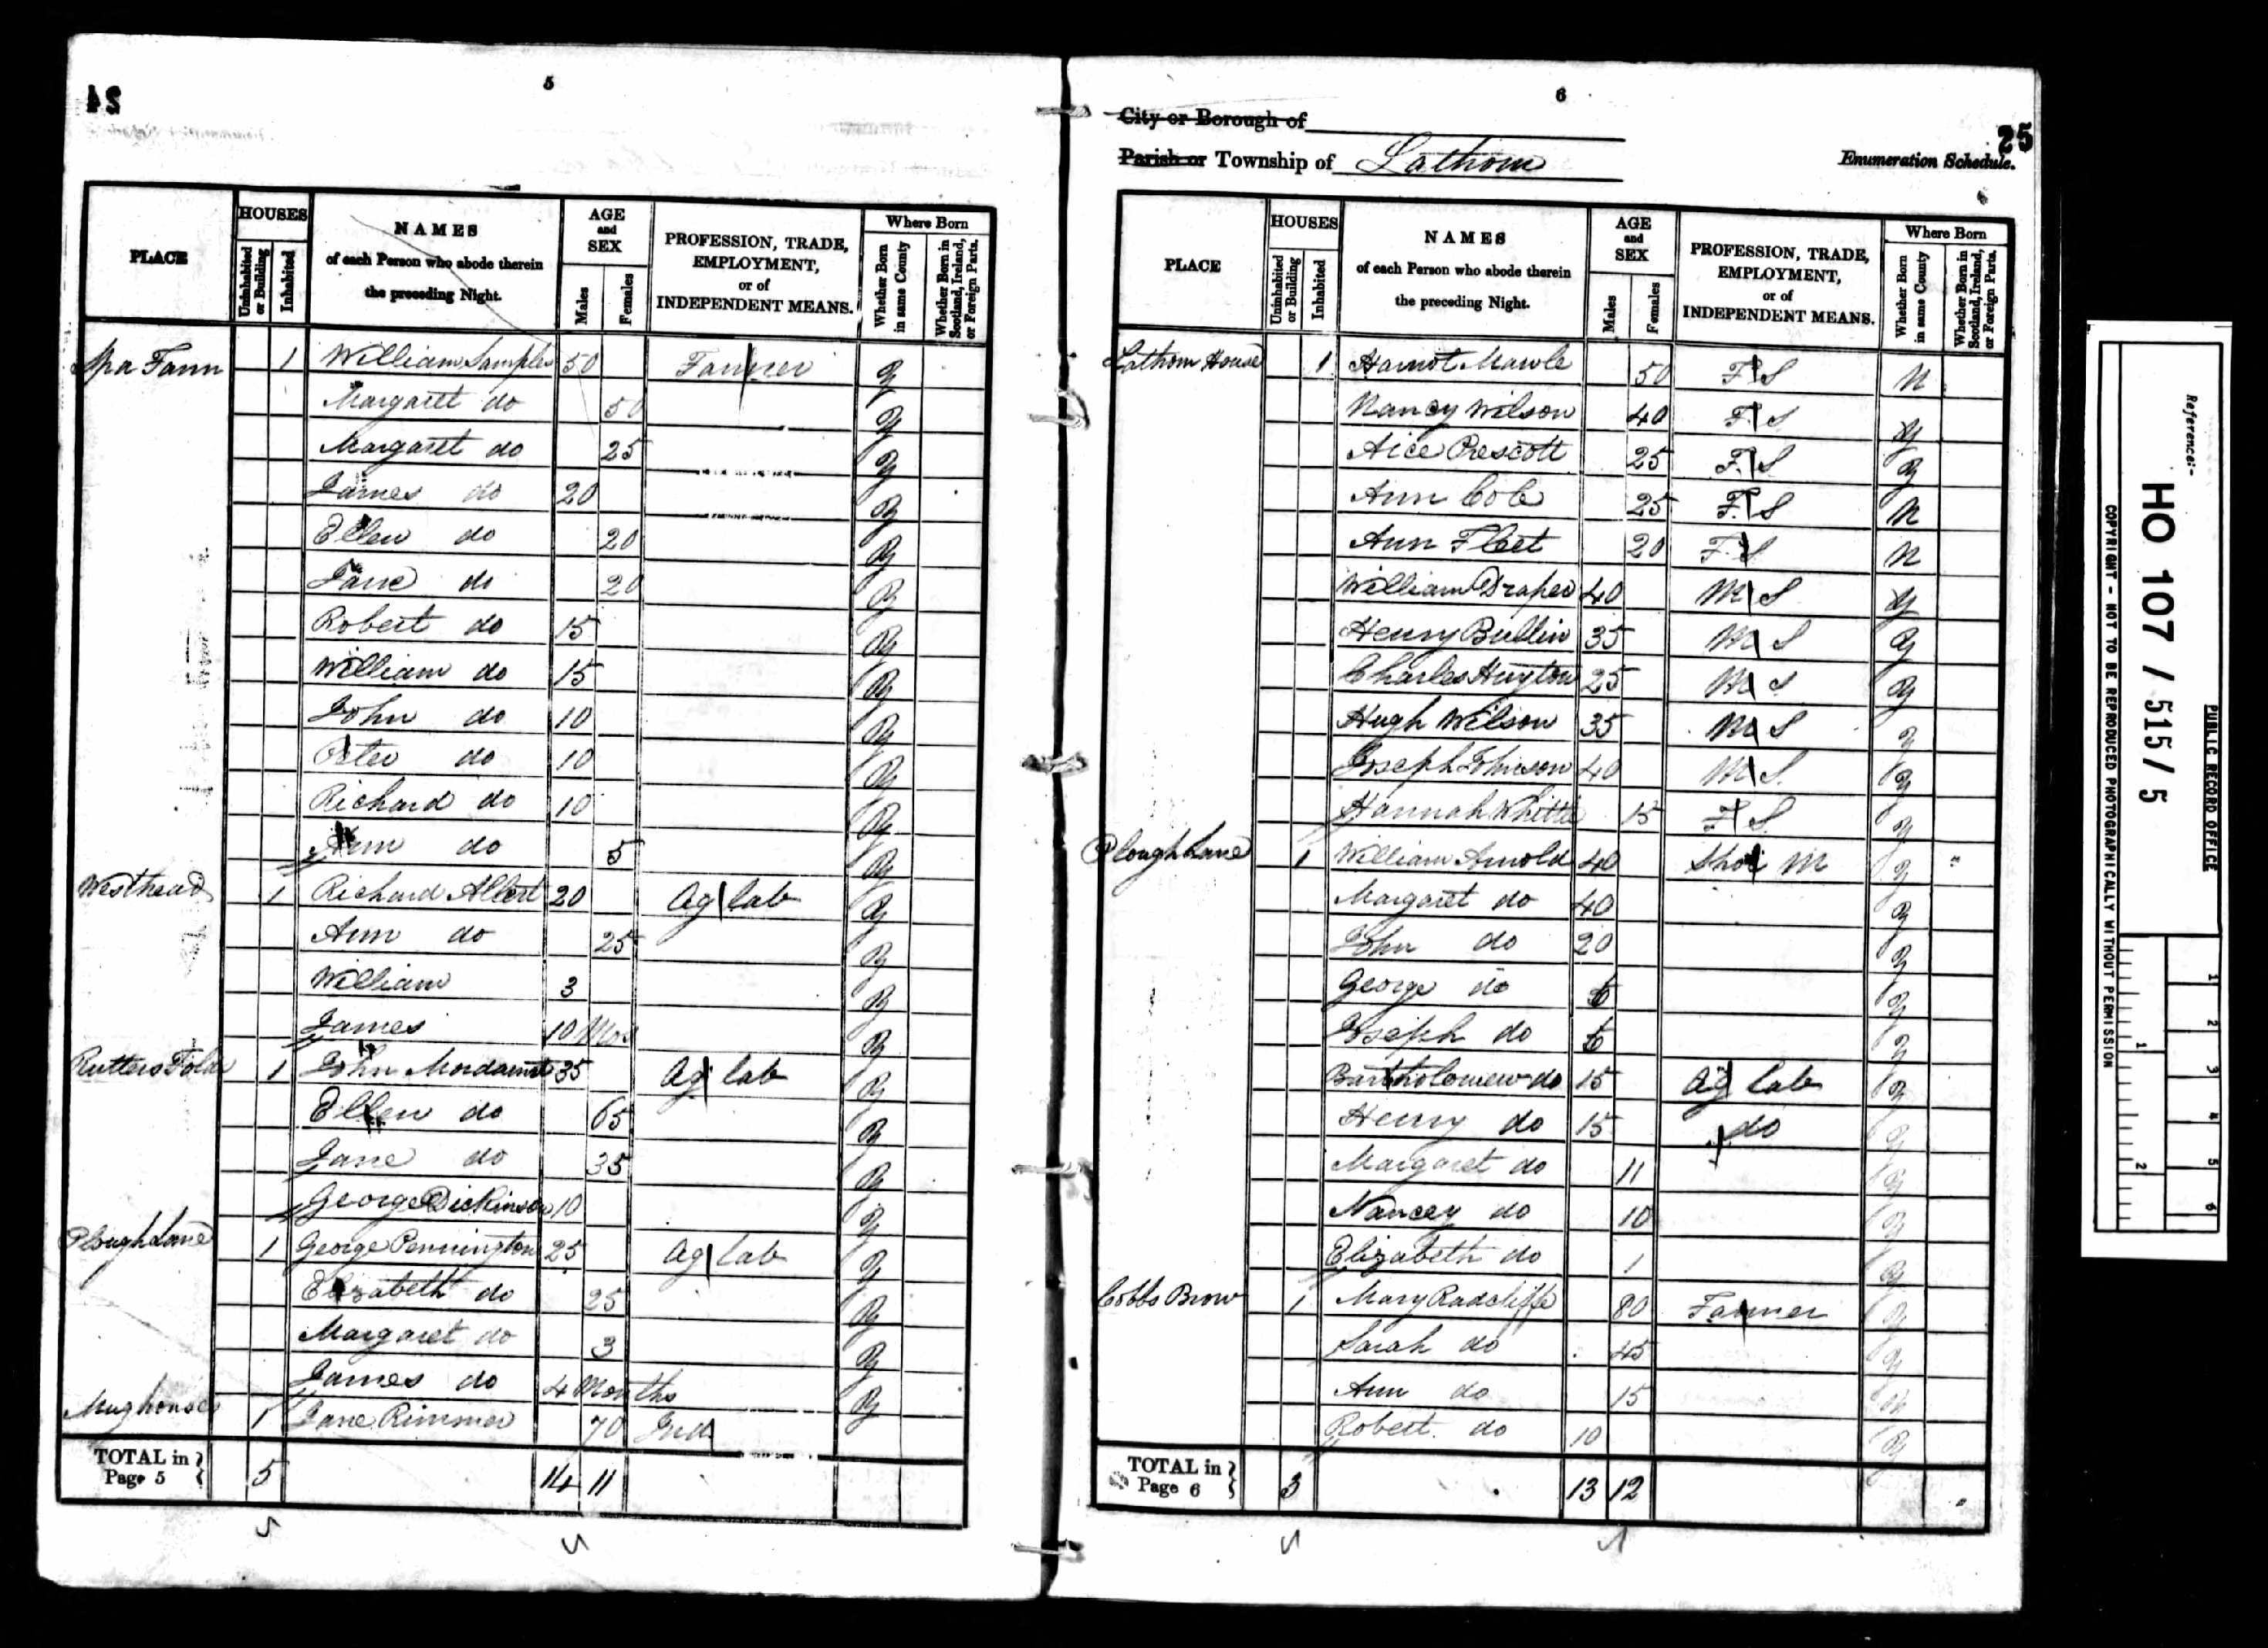 24
5
PLACE
HOUSES
Uninhabited or Building
Inhabited
NAMES
of each Person who abode therein
the preceding Night.
AGE
and
SEX
Males
Females
PROFESSION, TRADE,
EMPLOYMENT,
or of
INDEPENDENT MEANS.
Where Born
Whether Born in same County
Whether Born in Scotland, Ireland, or Foreign Parts.
Spa Farm 1 William Samples 50 Farmer y
Margaret do 50 y
Margaret do 25 y
James do 20 y
Ellen do 20 y
Jane do 20 y
Robert do 15 y
William do 15 y
John do 10 y
Peter do 10 y
Richard do 10 y
Ann do 5 y
Westhead 1 Richard 20 Ag lab y
Ann do 25 y
William 3 y
James 10 Mos y
Rutters Fold 1 John Mordaunt 35 Ag lab y
Ellen do 65 y
Jane do 35 y
George Dickinson 10 y
Plough Lane 1 George Pennington 25 Ag lab y
Elizabeth do 25 y
Margaret do 3 y
James do 4 Months y
Mughouse 1 Jane Rimmer 70 Ind
TOTAL in Page 5 5 14 11
6
City or Borough of
Parish or Township of Lathom
25
Enumeration Schedule.
PLACE
HOUSES
Uninhabited or Building
Inhabited
NAMES
of each Person who abode therein
the preceding Night.
AGE
and
SEX
Males
Females
PROFESSION, TRADE,
EMPLOYMENT,
or of
INDEPENDENT MEANS.
Where Born
Whether Born in same County
Whether Born in Scotland, Ireland, or Foreign Parts.
Lathom House 1 Mawle 50 F S N
Nancy Wilson 40 F. S y
Alice Prescott 25 F. S y
Ann Cole 25 F. S N
Ann Fleet 20 F. S N
William Draper 40 M S y
Henry Bullin 35 M S y
Charles Huyton 25 M S y
Hugh Wilson 35 M S y
Joseph Johnson 40 M S y
Hannah Whittle 15 F S y
Plough Lane 1 William Arnold 40 Shoe M y
Margaret do 40 y
John do 20 y
George do y
Joseph do y
Bartholomew do 15 Ag lab y
Henry do 15 do y
Margaret do 11 y
Nancey do 10 y
Elizabeth do 1 y
Cobbs Brow 1 Mary Radcliffe 80 Farmer y
Sarah do 45 y
Ann do 15
Robert do 10 y
TOTAL in Page 6 3 13 12
Reference:-
HO 107 / 515 / 5
PUBLIC RECORD OFFICE
COPYRIGHT - NOT TO BE REPRODUCED PHOTOGRAPHICALLY WITHOUT PERMISSION
1
2
1
2
3
4
5
6